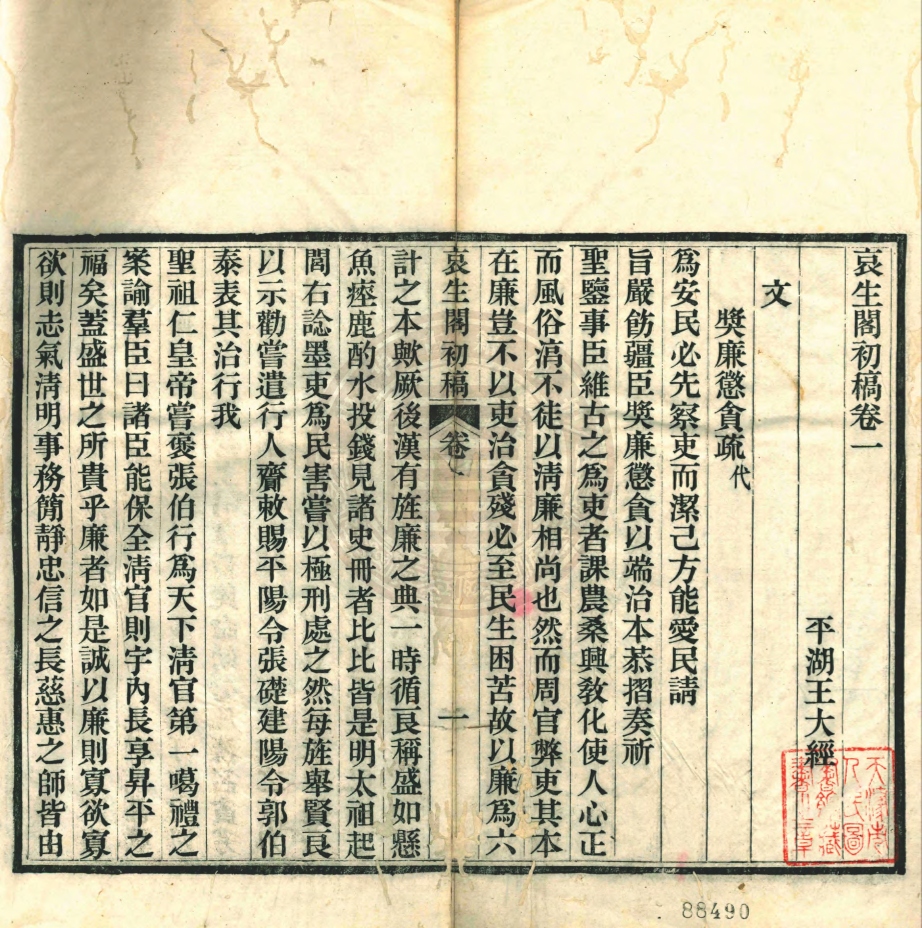 哀生閣初稿卷一
平湖王大經
天津市
人民圖
書館藏
書之章
文
獎廉懲貪疏代
爲安民必先察吏而潔己方能愛民請
旨嚴飭疆臣獎廉懲貪以端治本恭摺奏祈
聖鑒事臣維古之爲吏者課農桑興教化使人心正
而風俗湻不徒以清廉相尚也然而周官弊吏其本
在廉豈不以吏治貪殘必至民生困苦故以廉爲六
哀生閣初稿 卷一 一
計之本歟厥後漢有旌廉之典一時循良稱盛如懸
魚瘞鹿酌水投錢見諸史冊者比比皆是明太祖起
閭右諗墨吏爲民害嘗以極刑處之然每旌舉賢良
以示勸嘗遣行人齎敕賜平陽令張礎建陽令郭伯
泰表其治行我
聖祖仁皇帝嘗褒張伯行爲天下清官第一噶禮之
案諭羣臣曰諸臣能保全清官則宇內長享昇平之
福矣蓋盛世之所貴乎廉者如是誠以廉則寡欲寡
欲則志氣清明事務簡靜忠信之長慈惠之師皆由
88490